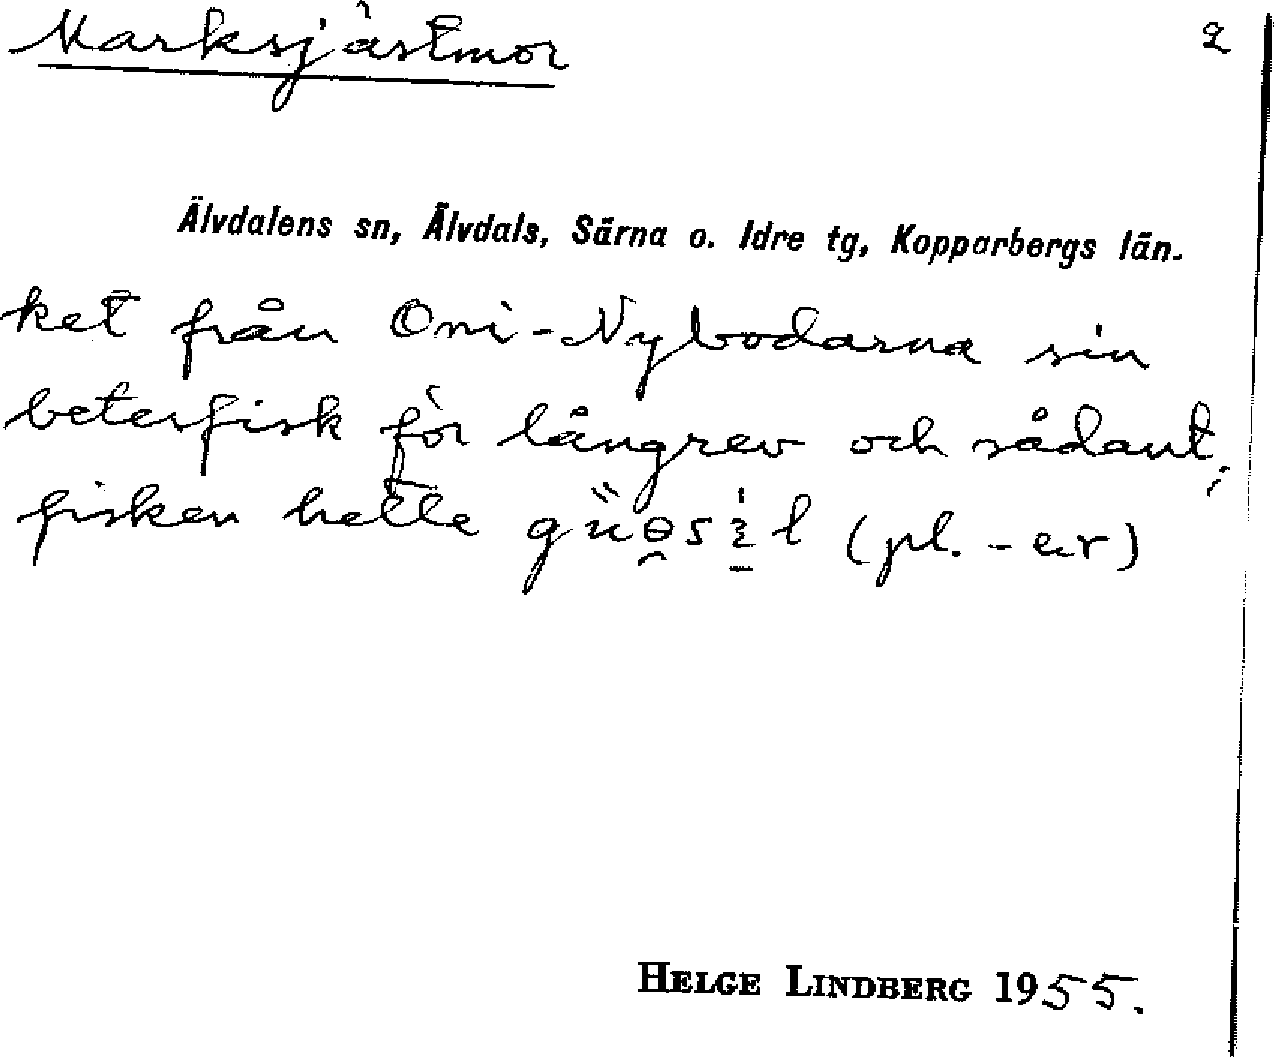 Marksjästmor 2
Älvdalens sn, Älvdals, Särna o. Idre tg, Kopparbergs län.
ket från Oni-Nybodarna sin
beterfisk för långrev och sådant;
fisken hette (pl. -er)
HELGE LINDBERG 1955.